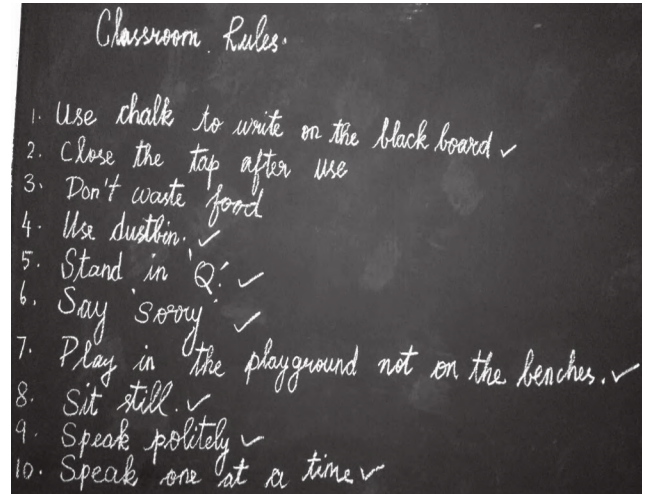 Classroom Rules.
1. Use chalk to write on the black board ✓
2. Close the tap after use
3. Don't waste food
4. Use dustbin. ✓
5. Stand in 'Q'. ✓
6. Say 'sorry' ✓
7. Play in the playground not on the benches. ✓
8. Sit still. ✓
9. Speak politely ✓
10. Speak one at a time ✓